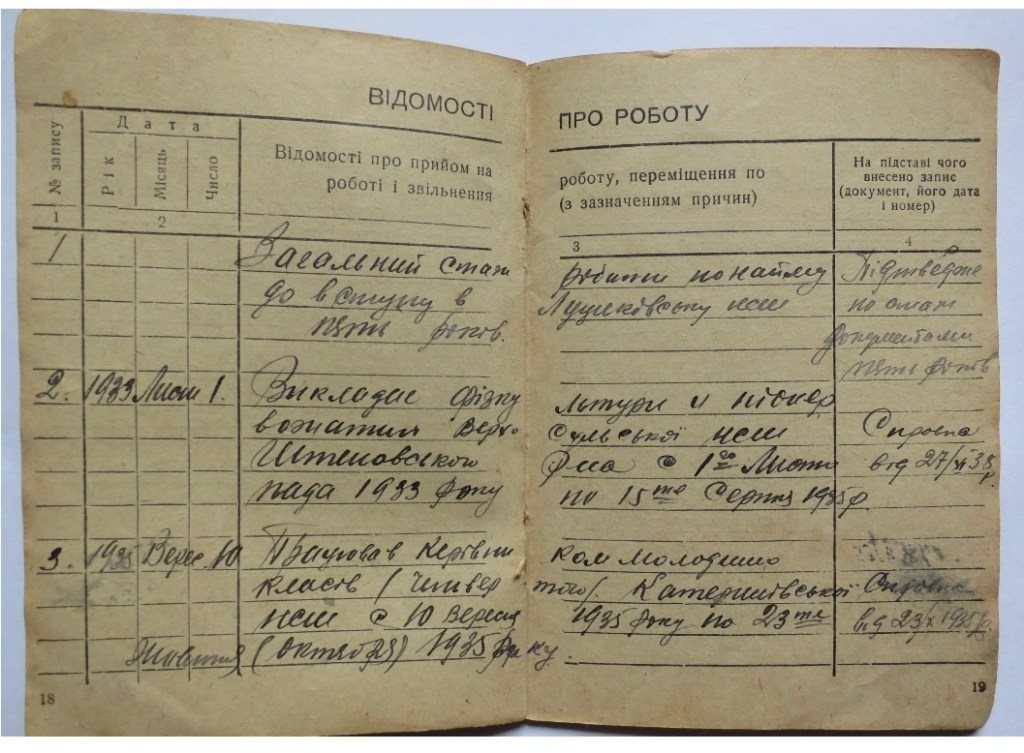 ВІДОМОСТІ ПРО РОБОТУ
№ запису
Дата
Рік Місяць Число
Відомості про прийом на роботу, переміщення по
роботі і звільнення (з зазначенням причин)
На підставі чого
внесено запис
(документ, його дата
і номер)
1 2 3 4
1 Загальний стаж роботи по найму
до вступу в нсш
пять років.
Підтвєджено
по
документами
пять років
2. 1933 Лист 1. Викладас фізкультури и піонер
вожатим
нсш
пада 1933 року
с 1го Листо
по 15те Серпня 1935р.
Справка
від 27/XI 38р.
3. 1935 Верес. 10 Працював Керівником молодших
класів (Четвертого).
нсш с 10 Вересня 1935 року по 23те
Жовтня (октября) 1935 року.
Справка
від 23/X 1935р.
18
19